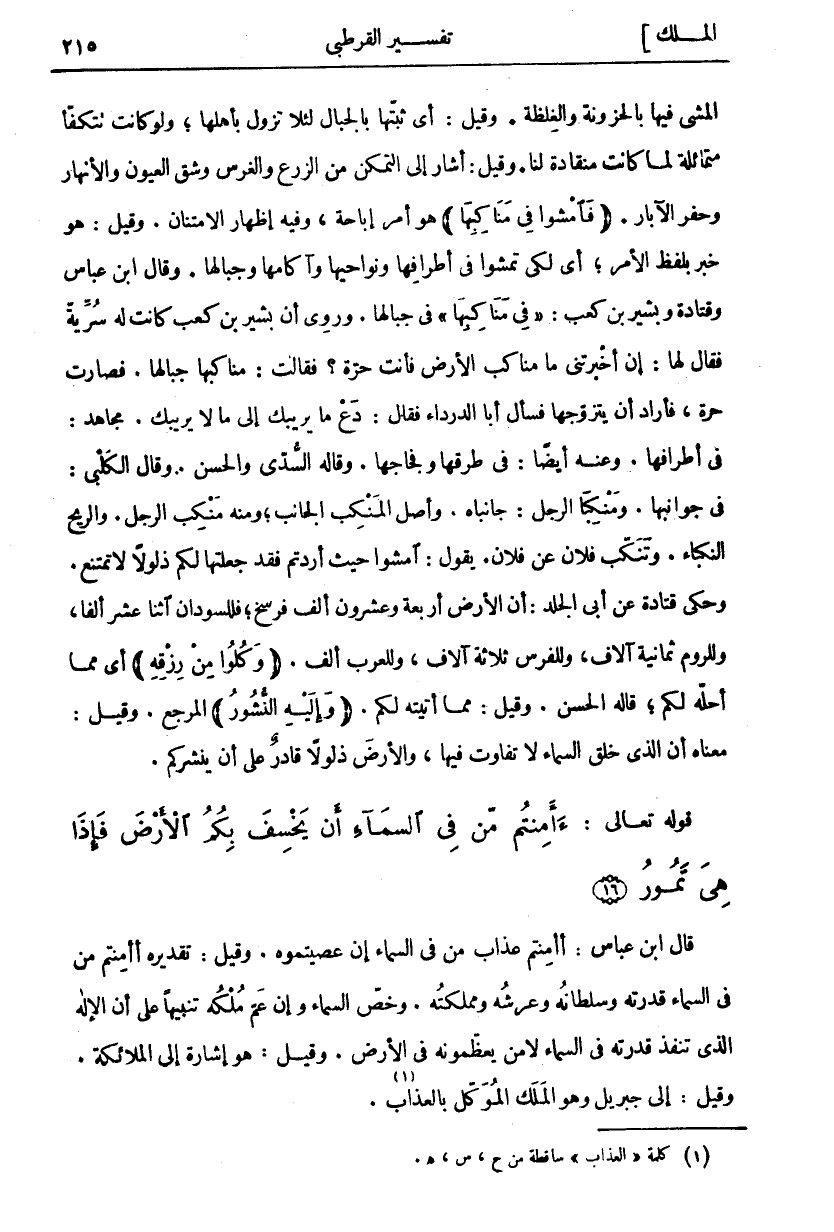 الملك ] تفسير القرطبى ٢١٥
المشى فيها بالحزونة والغِلظة . وقيل : أى ثبتّها بالجبال لئلا تزول بأهلها ؛ ولو كانت تتكفّأ
متمائلة لما كانت منقادة لنا. وقيل : أشار إلى التمكن من الزرع والغرس وشق العيون والأنهار
وحفر الآبار . ﴿ فَٱمْشُوا فِى مَنَاكِبِهَا ﴾ هو أمر إباحة ، وفيه إظهار الامتنان . وقيل : هو
خبر بلفظ الأمر ؛ أى لكى تمشوا فى أطرافها ونواحيها وآكامها وجبالها . وقال ابن عباس
وقتادة وبشير بن كعب : « فِى مَنَاكِبِهَا » فى جبالها . وروى أن بشير بن كعب كانت له سُرِّيةٌ
فقال لها : إن أخبرتنى ما مناكب الأرض فأنت حرّة ؟ فقالت : مناكبها جبالها . فصارت
حرة ، فأراد أن يتزوّجها فسأل أبا الدرداء فقال : دَعْ ما يريبك إلى ما لا يريبك . مجاهد :
فى أطرافها . وعنه أيضًا : فى طرقها وفجاجها . وقاله السُّدّى والحسن . وقال الكَلْبِى :
فى جوانبها . ومَنْكِبَا الرجل : جانباه . وأصل المَنْكِب الجانب ؛ ومنه مَنْكِب الرجل. والريح
النكباء . وتَنَكّب فلان عن فلان. يقول : ٱمشوا حيث أردتم فقد جعلتها لكم ذلولًا لا تمتنع.
وحكى قتادة عن أبى الجلد : أن الأرض أربعة وعشرون ألف فرسخ ؛ فللسودان ٱثنا عشر ألفا،
وللروم ثمانية آلاف، وللفرس ثلاثة آلاف ، وللعرب ألف . ﴿ وَكُلُوا مِنْ رِزْقِهِ ﴾ أى مما
أحلّه لكم ؛ قاله الحسن . وقيل : مما أتيته لكم . ﴿ وَإِلَيْهِ النُّشُورُ ﴾ المرجع . وقيل :
معناه أن الذى خلق السماء لا تفاوت فيها ، والأرضَ ذلولًا قادرٌ على أن ينشركم .
قوله تعالى : ءَأَمِنتُم مَّن فِى ٱلسَّمَآءِ أَن يَخْسِفَ بِكُمُ ٱلْأَرْضَ فَإِذَا
هِىَ تَمُورُ ١٦
قال ابن عباس : أأمنتم عذاب من فى السماء إن عصيتموه . وقيل : تقديره أأمنتم من
فى السماء قدرته وسلطانُه وعرشُه ومملكتُه . وخصّ السماء وإن عَمّ مُلْكُه تنبيهاً على أن الإلٰه
الذى تنفذ قدرته فى السماء لا من يعظّمونه فى الأرض . وقيل : هو إشارة إلى الملائكة .
وقيل : إلى جبريل وهو المَلَك المُوَكّل بالعذاب (١) .
(١) كلمة « العذاب » ساقطة من ح ، س ، ه .